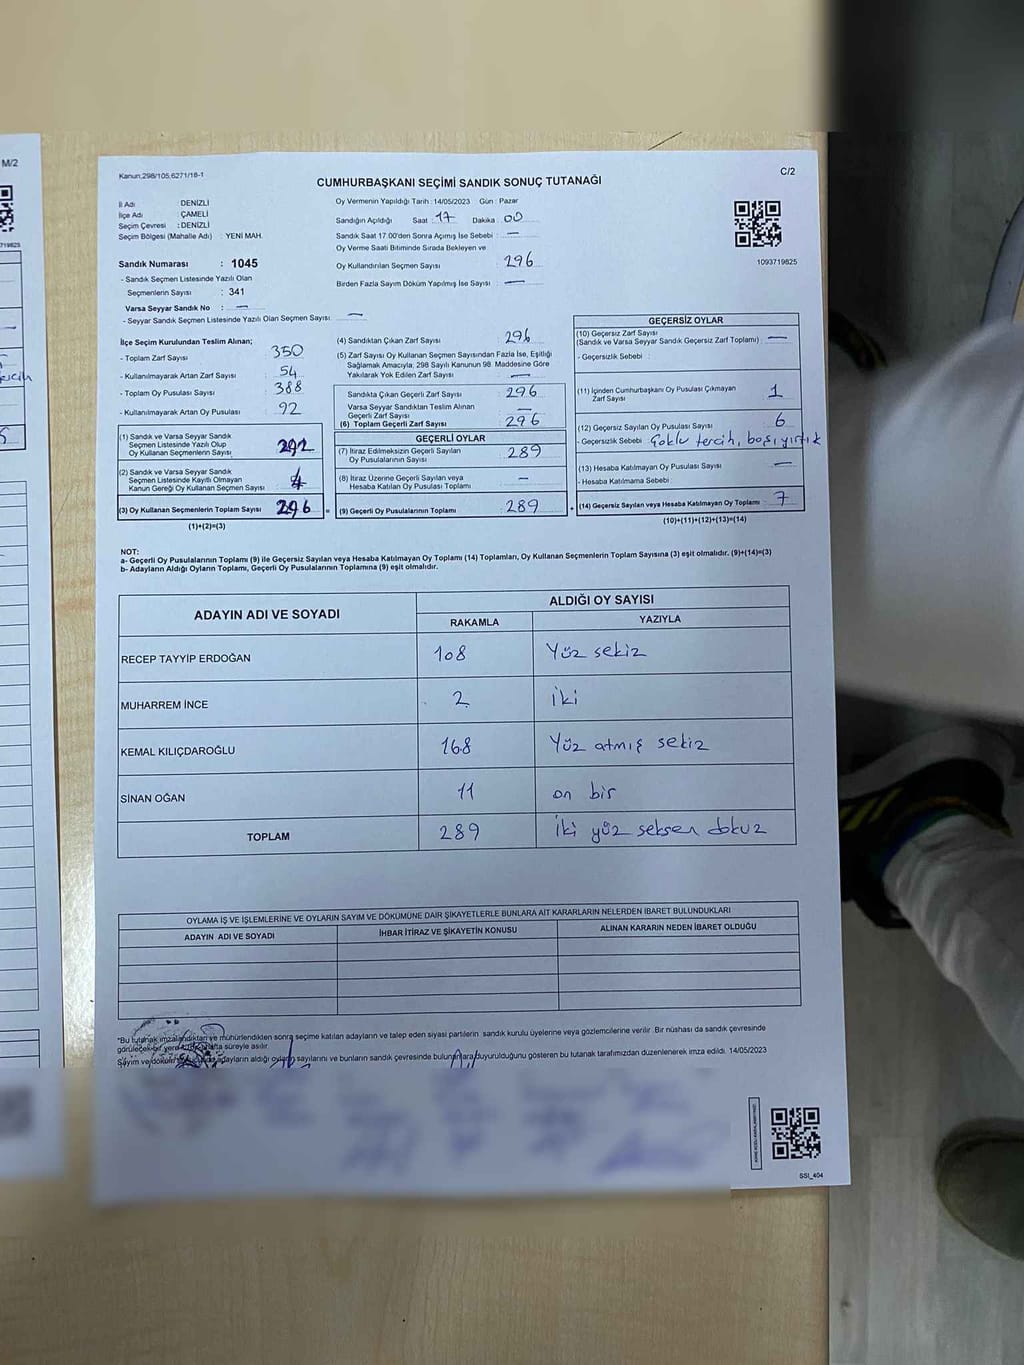 M/2
719825
Kanun,298/105,6271/18-1
C/2
CUMHURBAŞKANI SEÇİMİ SANDIK SONUÇ TUTANAĞI
İl Adı : DENİZLİ
İlçe Adı : ÇAMELİ
Seçim Çevresi : DENİZLİ
Seçim Bölgesi (Mahalle Adı) : YENİ MAH.
Sandık Numarası : 1045
- Sandık Seçmen Listesinde Yazılı Olan
Seçmenlerin Sayısı : 341
Varsa Seyyar Sandık No : —
- Seyyar Sandık Seçmen Listesinde Yazılı Olan Seçmen Sayısı: —
Oy Vermenin Yapıldığı Tarih : 14/05/2023 Gün : Pazar
Sandığın Açıldığı Saat : 17 Dakika : 00
Sandık Saat 17.00'den Sonra Açımış İse Sebebi : —
Oy Verme Saati Bitiminde Sırada Bekleyen ve
Oy Kullandırılan Seçmen Sayısı : 296
Birden Fazla Sayım Döküm Yapılmış İse Sayısı : —
1093719825
İlçe Seçim Kurulundan Teslim Alınan;
- Toplam Zarf Sayısı : 350
- Kullanılmayarak Artan Zarf Sayısı : 54
- Toplam Oy Pusulası Sayısı : 388
- Kullanılmayarak Artan Oy Pusulası : 92
(1) Sandık ve Varsa Seyyar Sandık
Seçmen Listesinde Yazılı Olup
Oy Kullanan Seçmenlerin Sayısı 292
(2) Sandık ve Varsa Seyyar Sandık
Seçmen Listesinde Kayıtlı Olmayan
Kanun Gereği Oy Kullanan Seçmen Sayısı 4
(3) Oy Kullanan Seçmenlerin Toplam Sayısı 296 =
(1)+(2)=(3)
(4) Sandıktan Çıkan Zarf Sayısı : 296
(5) Zarf Sayısı Oy Kullanan Seçmen Sayısından Fazla İse, Eşitliği
Sağlamak Amacıyla; 298 Sayılı Kanunun 98. Maddesine Göre
Yakılarak Yok Edilen Zarf Sayısı : —
Sandıkta Çıkan Geçerli Zarf Sayısı : 296
Varsa Seyyar Sandıktan Teslim Alınan
Geçerli Zarf Sayısı : —
(6) Toplam Geçerli Zarf Sayısı : 296
GEÇERLİ OYLAR
(7) İtiraz Edilmeksizin Geçerli Sayılan
Oy Pusulalarının Sayısı : 289
(8) İtiraz Üzerine Geçerli Sayılan veya
Hesaba Katılan Oy Pusulası Toplamı : —
(9) Geçerli Oy Pusulalarının Toplamı : 289 +
GEÇERSİZ OYLAR
(10) Geçersiz Zarf Sayısı
(Sandık ve Varsa Seyyar Sandık Geçersiz Zarf Toplamı) : —
- Geçersizlik Sebebi :
(11) İçinden Cumhurbaşkanı Oy Pusulası Çıkmayan
Zarf Sayısı : 1
(12) Geçersiz Sayılan Oy Pusulası Sayısı : 6
- Geçersizlik Sebebi : Çoklu tercih, boş, yırtık
(13) Hesaba Katılmayan Oy Pusulası Sayısı : —
- Hesaba Katılmama Sebebi :
(14) Geçersiz Sayılan veya Hesaba Katılmayan Oy Toplamı : 7
(10)+(11)+(12)+(13)=(14)
NOT:
a- Geçerli Oy Pusulalarının Toplamı (9) ile Geçersiz Sayılan veya Hesaba Katılmayan Oy Toplamı (14) Toplamları, Oy Kullanan Seçmenlerin Toplam Sayısına (3) eşit olmalıdır. (9)+(14)=(3)
b- Adayların Aldığı Oyların Toplamı, Geçerli Oy Pusulalarının Toplamına (9) eşit olmalıdır.
ADAYIN ADI VE SOYADI ALDIĞI OY SAYISI
RAKAMLA YAZIYLA
RECEP TAYYİP ERDOĞAN 108 Yüz sekiz
MUHARREM İNCE 2 iki
KEMAL KILIÇDAROĞLU 168 Yüz atmış sekiz
SİNAN OĞAN 11 on bir
TOPLAM 289 iki yüz seksen dokuz
OYLAMA İŞ VE İŞLEMLERİNE VE OYLARIN SAYIM VE DÖKÜMÜNE DAİR ŞİKAYETLERLE BUNLARA AİT KARARLARIN NELERDEN İBARET BULUNDUKLARI
ADAYIN ADI VE SOYADI İHBAR İTİRAZ VE ŞİKAYETİN KONUSU ALINAN KARARIN NEDEN İBARET OLDUĞU
"Bu tutanak imzalandıktan ve mühürlendikten sonra seçime katılan adayların ve talep eden siyasi partilerin sandık kurulu üyelerine veya gözlemcilerine verilir. Bir nüshası da sandık çevresinde
görülecek bir yere bir hafta süreyle asılır.
Sayım ve döküm adayların aldığı oyların sayılarını ve bunların sandık çevresinde bulunanlara duyurulduğunu gösteren bu tutanak tarafımızdan düzenlenerek imza edildi. 14/05/2023
SSI_404